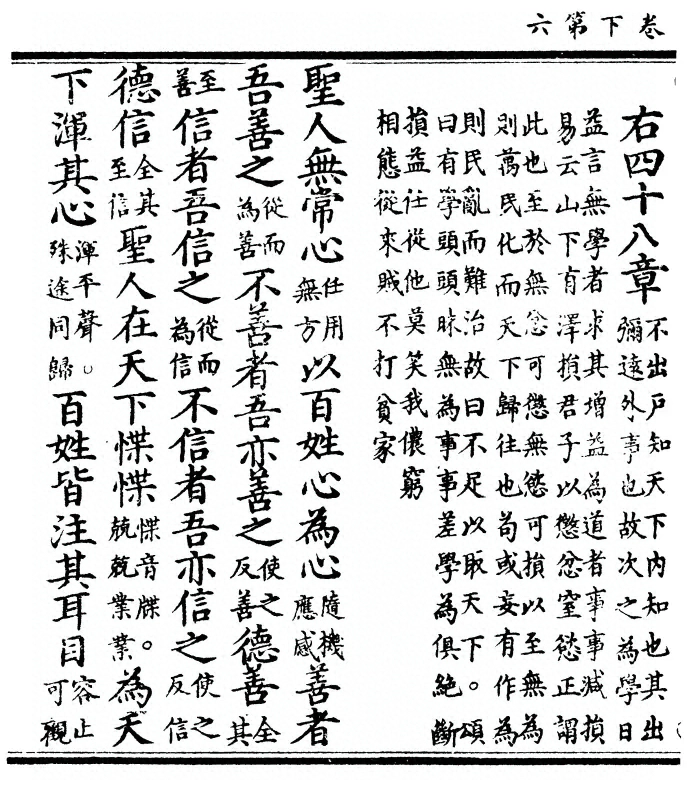 卷下第六
右四十八章不出戶知天下內知也其出
彌遠外事也故次之為學日
益言無學者求其增益為道者事事減損
易云山下有澤損君子以懲忿窒慾正謂
此也至於無念可懲無慾可損以至無為
則萬民化而天下歸往也苟或妄有作為
則民亂而難治故曰不足以取天下。頌
曰有學頭頭昧無為事事差學為俱絕斷
損益任從他莫笑我儂窮
相態從來賊不打貧家
聖人無常心任用無方以百姓心為心隨機應感善者
吾善之從而為善不善者吾亦善之使之反善德善全其
至善信者吾信之從而為信不信者吾亦信之使之反信
德信全其至信聖人在天下惵惵惵音牒。兢兢業業為天
下渾其心渾平聲。殊途同歸百姓皆注其耳目容止可觀